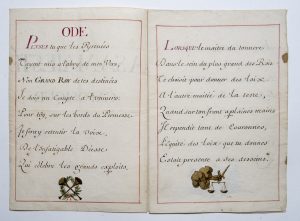 ODE
Penses tu que les Pyrenées
T'ayent mis a l'abry de mes
Non GRAND ROY de tes destinées
Je dois un Compte a l'univers
Pour toy, sur les bords du Permesse
Je forçay retentir la Voix
De l'infatigable Déesse
Qui célebre les grands exploits.
LORSQUE le maitre du tonnerre
Dans le sein du plus grand des Rois
Te choisit pour donner des loix
A l'autre moitié de la terre,
Quand sur ton front a pleines mains
Il répandit tant de Couronnes,
L'équité des loix que tu donnes
Estoit presente a ses desseins.